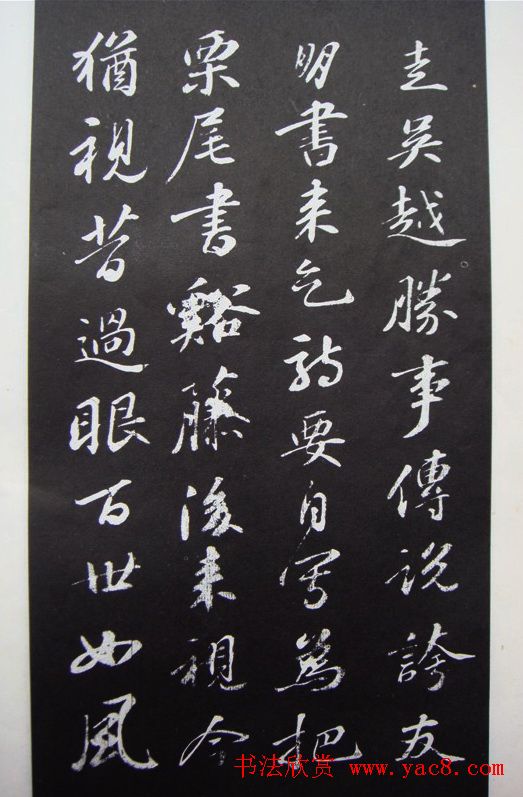 走吴越勝事傳说誇友
朋書来乞詩要自寫為把
栗尾書谿藤後来視今
猶視昔過眼百世如風
书法欣赏 www.yac8.com